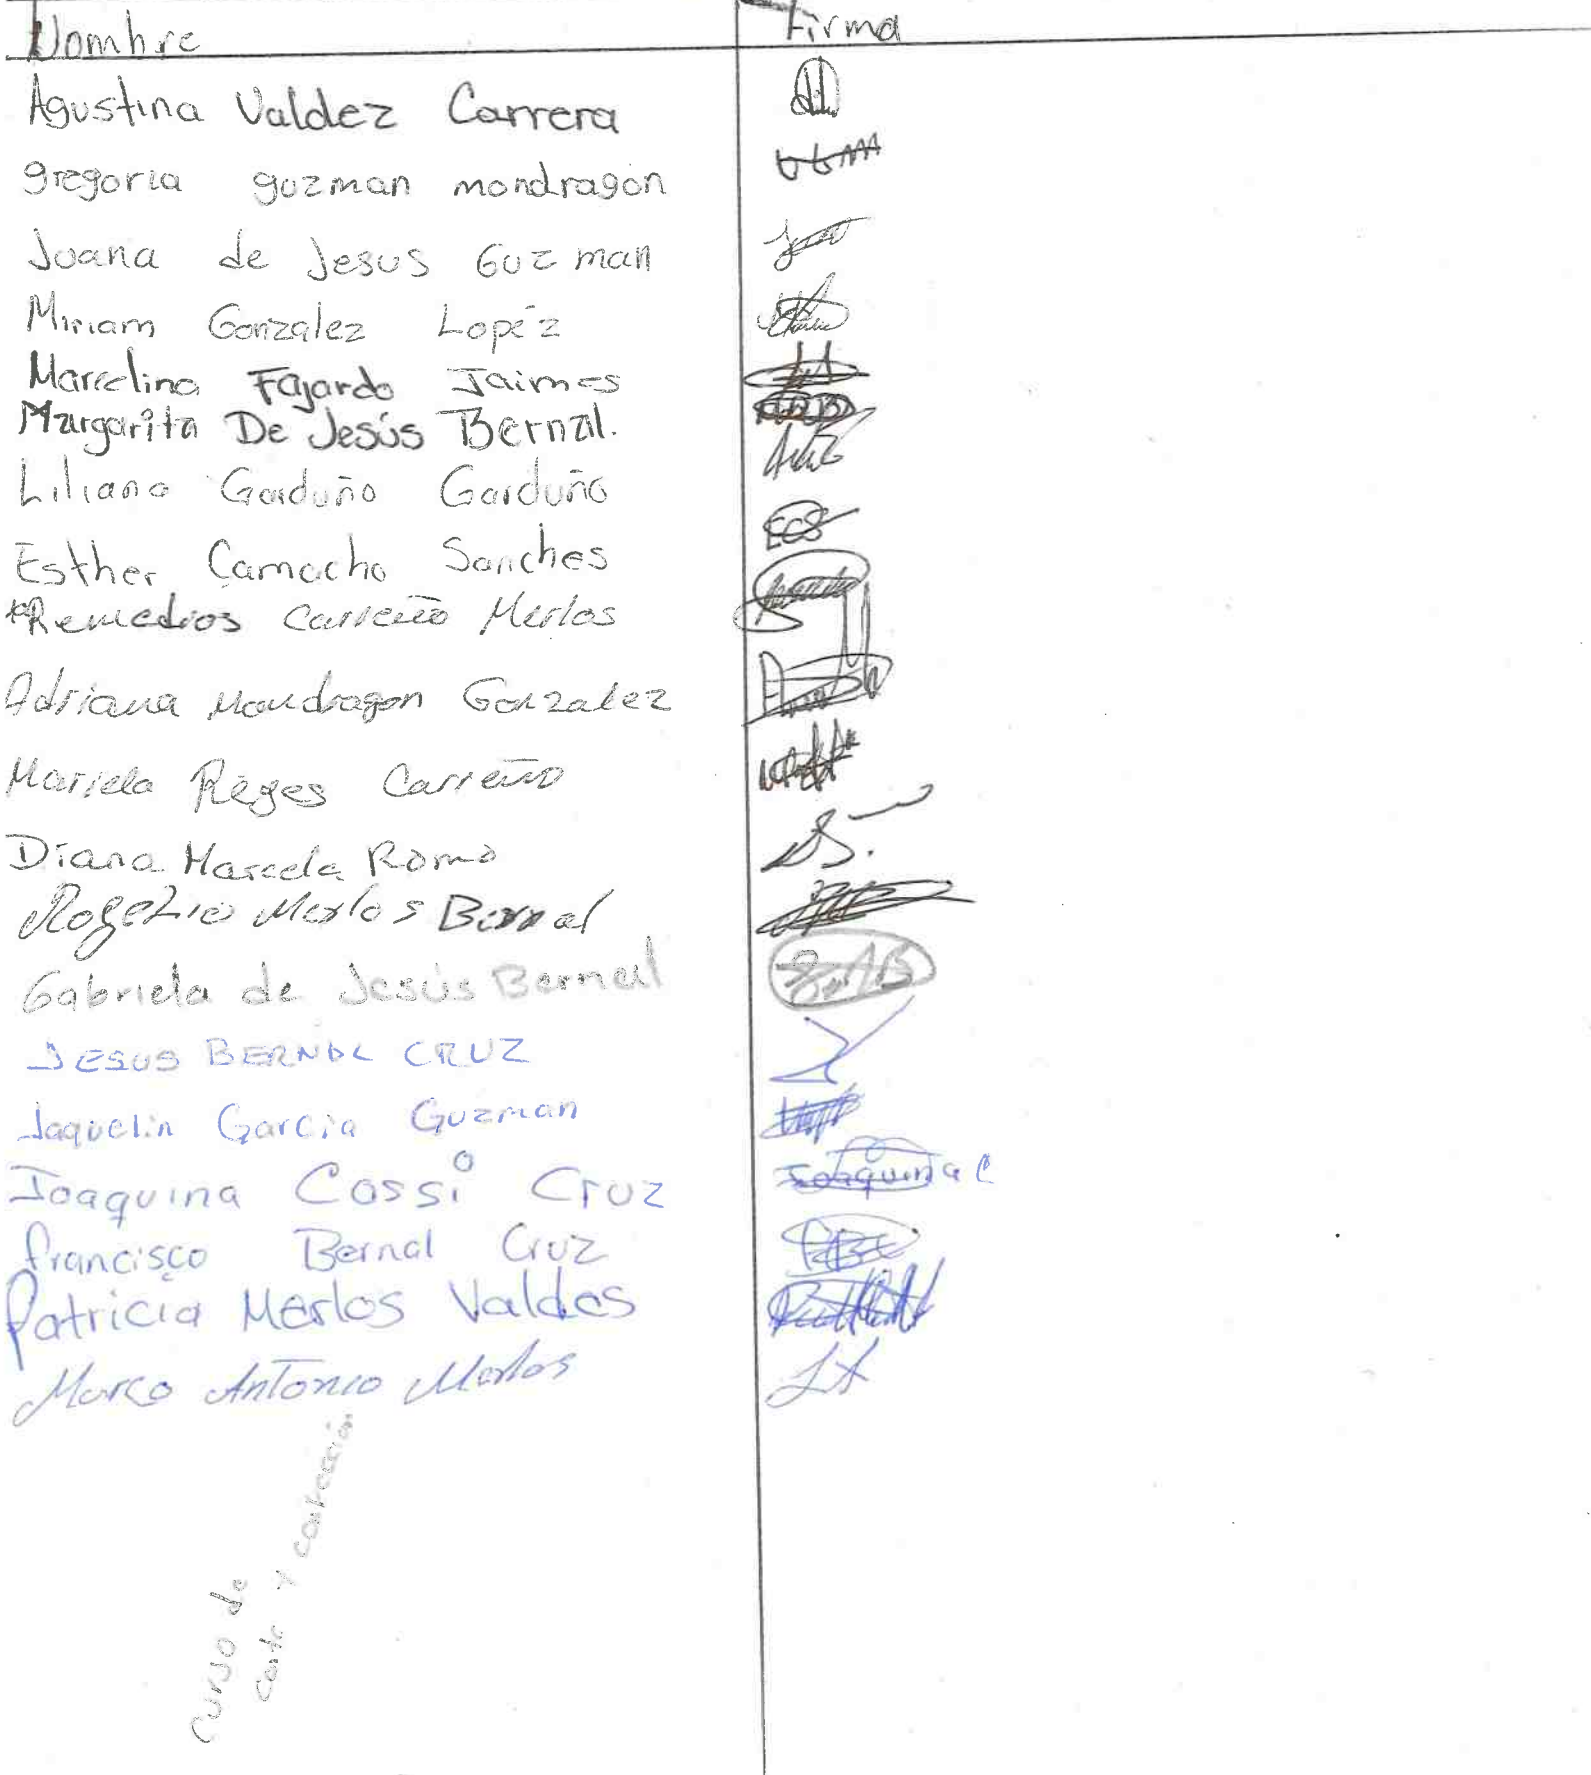 Nombre Firma
Agustina Valdez Carrera
gregoria guzman mondragon
Juana de Jesus Guzman
Miriam Gonzalez Lopéz
Marcelino Fajardo Jaimes
Margarita De Jesús Bernal.
Liliana Garduño Garduño
Esther Camacho Sanches ECS
*Remedios Carreño Merlos
Adriana Mondragon Gonzalez
Mariela Reyes Carreño
Diana Marcela Romo
Rogelio Merlos Bernal
Gabriela de Jesús Bernal
JESUS BERNAL CRUZ
Jaquelin Garcia Guzman
Joaquina Cossio Cruz Joaquina C
francisco Bernal Cruz
Patricia Merlos Valdes
Marco Antonio Merlos
curso de
corte y confección